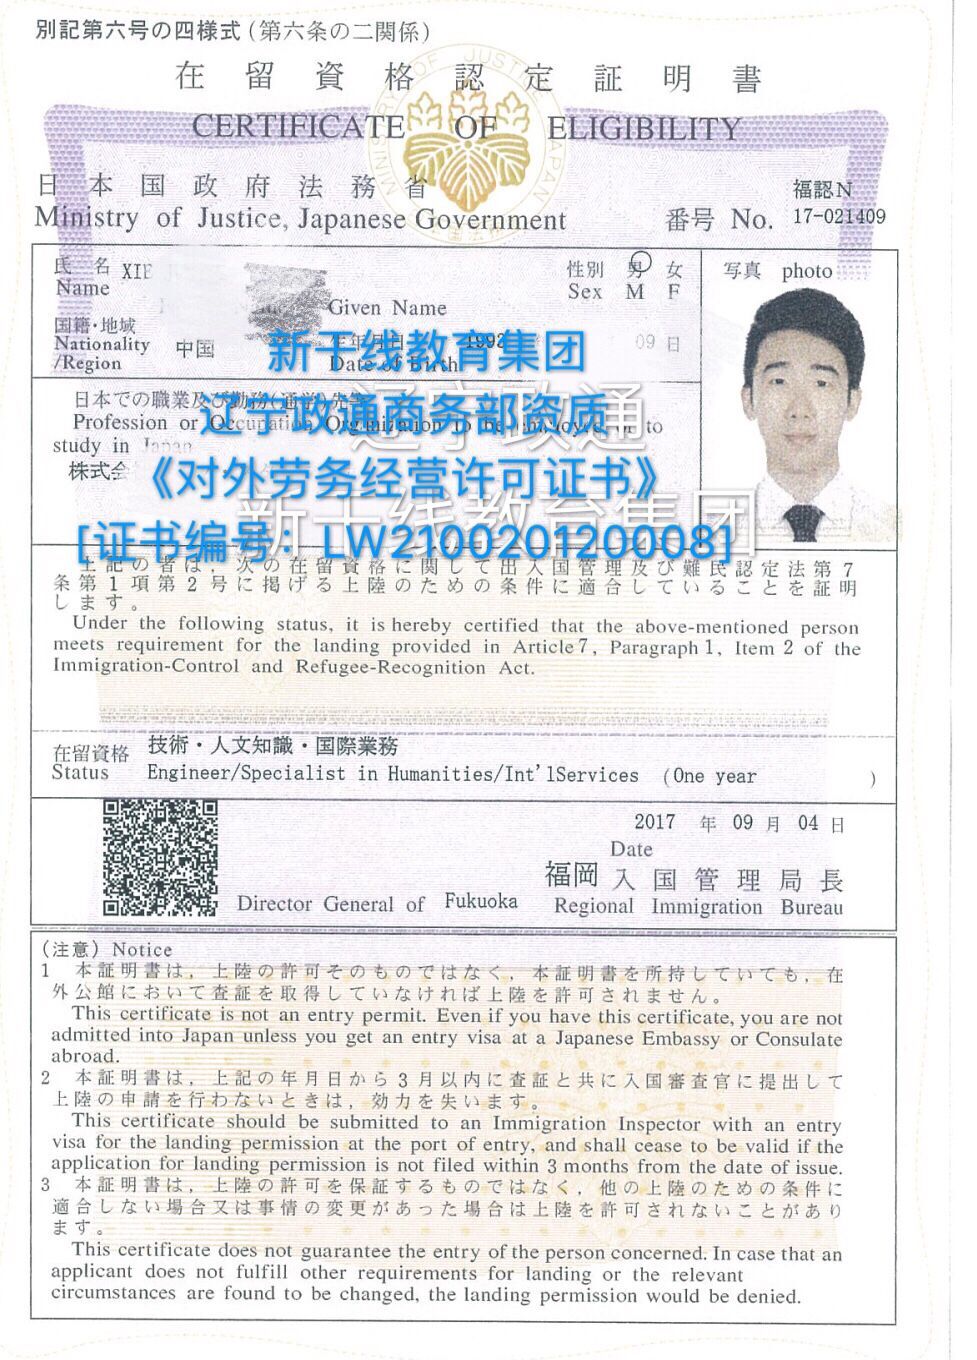 別記第六号の四様式(第六条の二関係)
在留資格認定証明書
CERTIFICATE OF ELIGIBILITY
日本国政府法務省
Ministry of Justice, Japanese Government
福認N
番号 No. 17-021409
氏名 XIE
Name
Given Name
性別 男 女
Sex M F
写真 photo
国籍・地域
Nationality
/Region
中国
生年月日 1993 09 日
Date of Birth
新干线教育集团
日本での職業及び勤務(通学)先等
Profession or Occupation, Organization to be employed or to
study in Japan
株式会
辽宁政通商务部资质
《对外劳务经营许可证书》
[证书编号：LW210020120008]
辽宁政通
新干线教育集团
上記の者は、次の在留資格に関して出入国管理及び難民認定法第7
条第1項第2号に掲げる上陸のための条件に適合していることを証明
します。
Under the following status, it is hereby certified that the above-mentioned person
meets requirement for the landing provided in Article 7, Paragraph 1, Item 2 of the
Immigration-Control and Refugee-Recognition Act.
在留資格 技術・人文知識・国際業務
Status Engineer/Specialist in Humanities/Int'lServices (One year )
2017 年 09 月 04 日
Date
福岡 入国管理局長
Director General of Fukuoka Regional Immigration Bureau
(注意) Notice
1 本証明書は、上陸の許可そのものではなく、本証明書を所持していても、在
外公館において査証を取得していなければ上陸を許可されません。
This certificate is not an entry permit. Even if you have this certificate, you are not
admitted into Japan unless you get an entry visa at a Japanese Embassy or Consulate
abroad.
2 本証明書は、上記の年月日から3月以内に査証と共に入国審査官に提出して
上陸の申請を行わないときは、効力を失います。
This certificate should be submitted to an Immigration Inspector with an entry
visa for the landing permission at the port of entry, and shall cease to be valid if the
application for landing permission is not filed within 3 months from the date of issue.
3 本証明書は、上陸の許可を保証するものではなく、他の上陸のための条件に
適合しない場合又は事情の変更があった場合は上陸を許可されないことがあり
ます。
This certificate does not guarantee the entry of the person concerned. In case that an
applicant does not fulfill other requirements for landing or the relevant
circumstances are found to be changed, the landing permission would be denied.